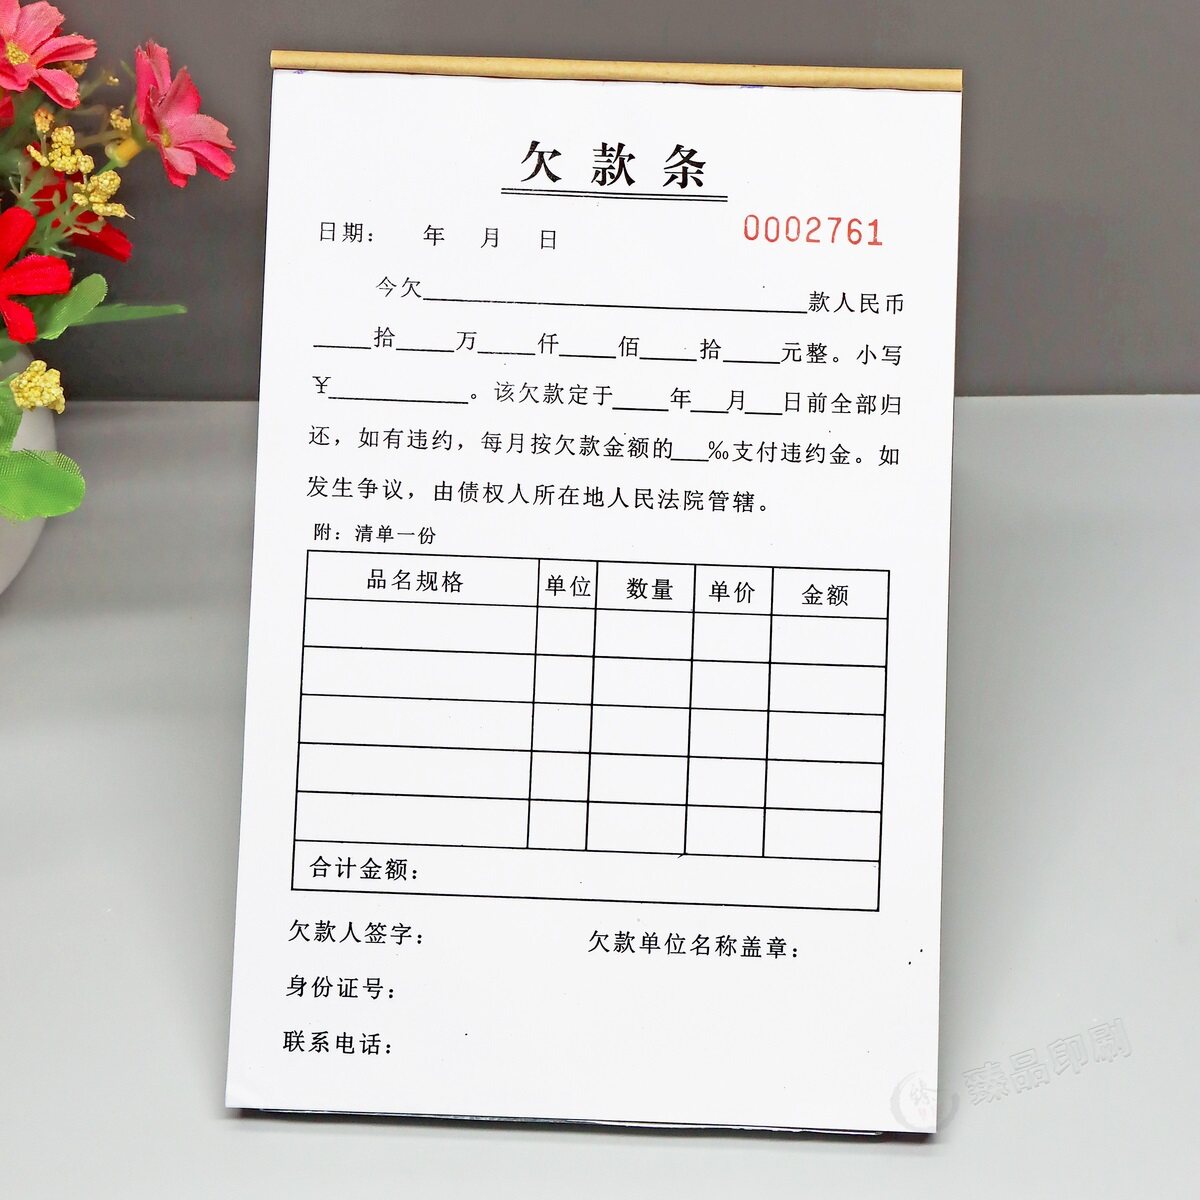 欠款条
日期： 年 月 日 0002761
今欠______款人民币
____拾____万____仟____佰____拾____元整。小写
¥______。该欠款定于____年___月___日前全部归
还，如有违约，每月按欠款金额的___‰支付违约金。如
发生争议，由债权人所在地人民法院管辖。
附：清单一份
品名规格 单位 数量 单价 金额
合计金额：
欠款人签字： 欠款单位名称盖章：
身份证号：
联系电话：
臻品印刷